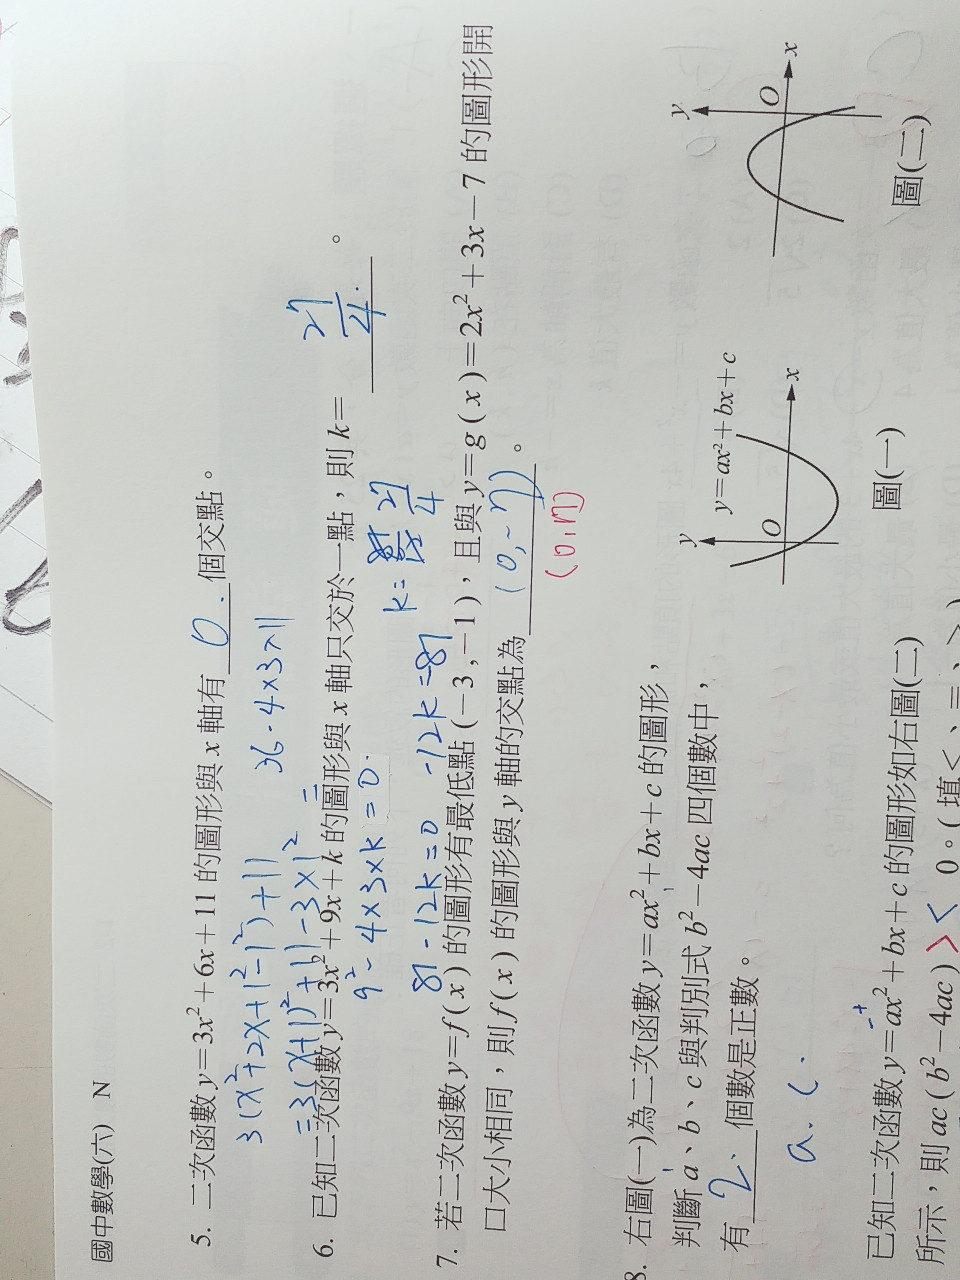 國中數學(六) N
5. 二次函數 y=3x²+6x+11 的圖形與 x 軸有 0. 個交點。
3(x²+2x+1²-1²)+11
36-4×3×11
=3(x+1)²+11-3×1²
6. 已知二次函數 y=3x²+9x+k 的圖形與 x 軸只交於一點，則 k= 27/4 。
9²-4×3×k=0.
81-12k=0 -12k=-81 k= 27/4
7. 若二次函數 y=f(x) 的圖形有最低點 (-3,-1)，且與 y=g(x)=2x²+3x-7 的圖形開
口大小相同，則 f(x) 的圖形與 y 軸的交點為 (0,-7) 。
(0,17)
8. 右圖(一)為二次函數 y=ax²+bx+c 的圖形，
判斷 a、b、c 與判別式 b²-4ac 四個數中，
有 2. 個數是正數。
a. c
y
y=ax²+bx+c
O
x
圖(一)
y
O
x
圖(二)
已知二次函數 y=ax²+bx+c 的圖形如右圖(二)
- +
所示，則 ac(b²-4ac) > < 0。(填<、=、>)